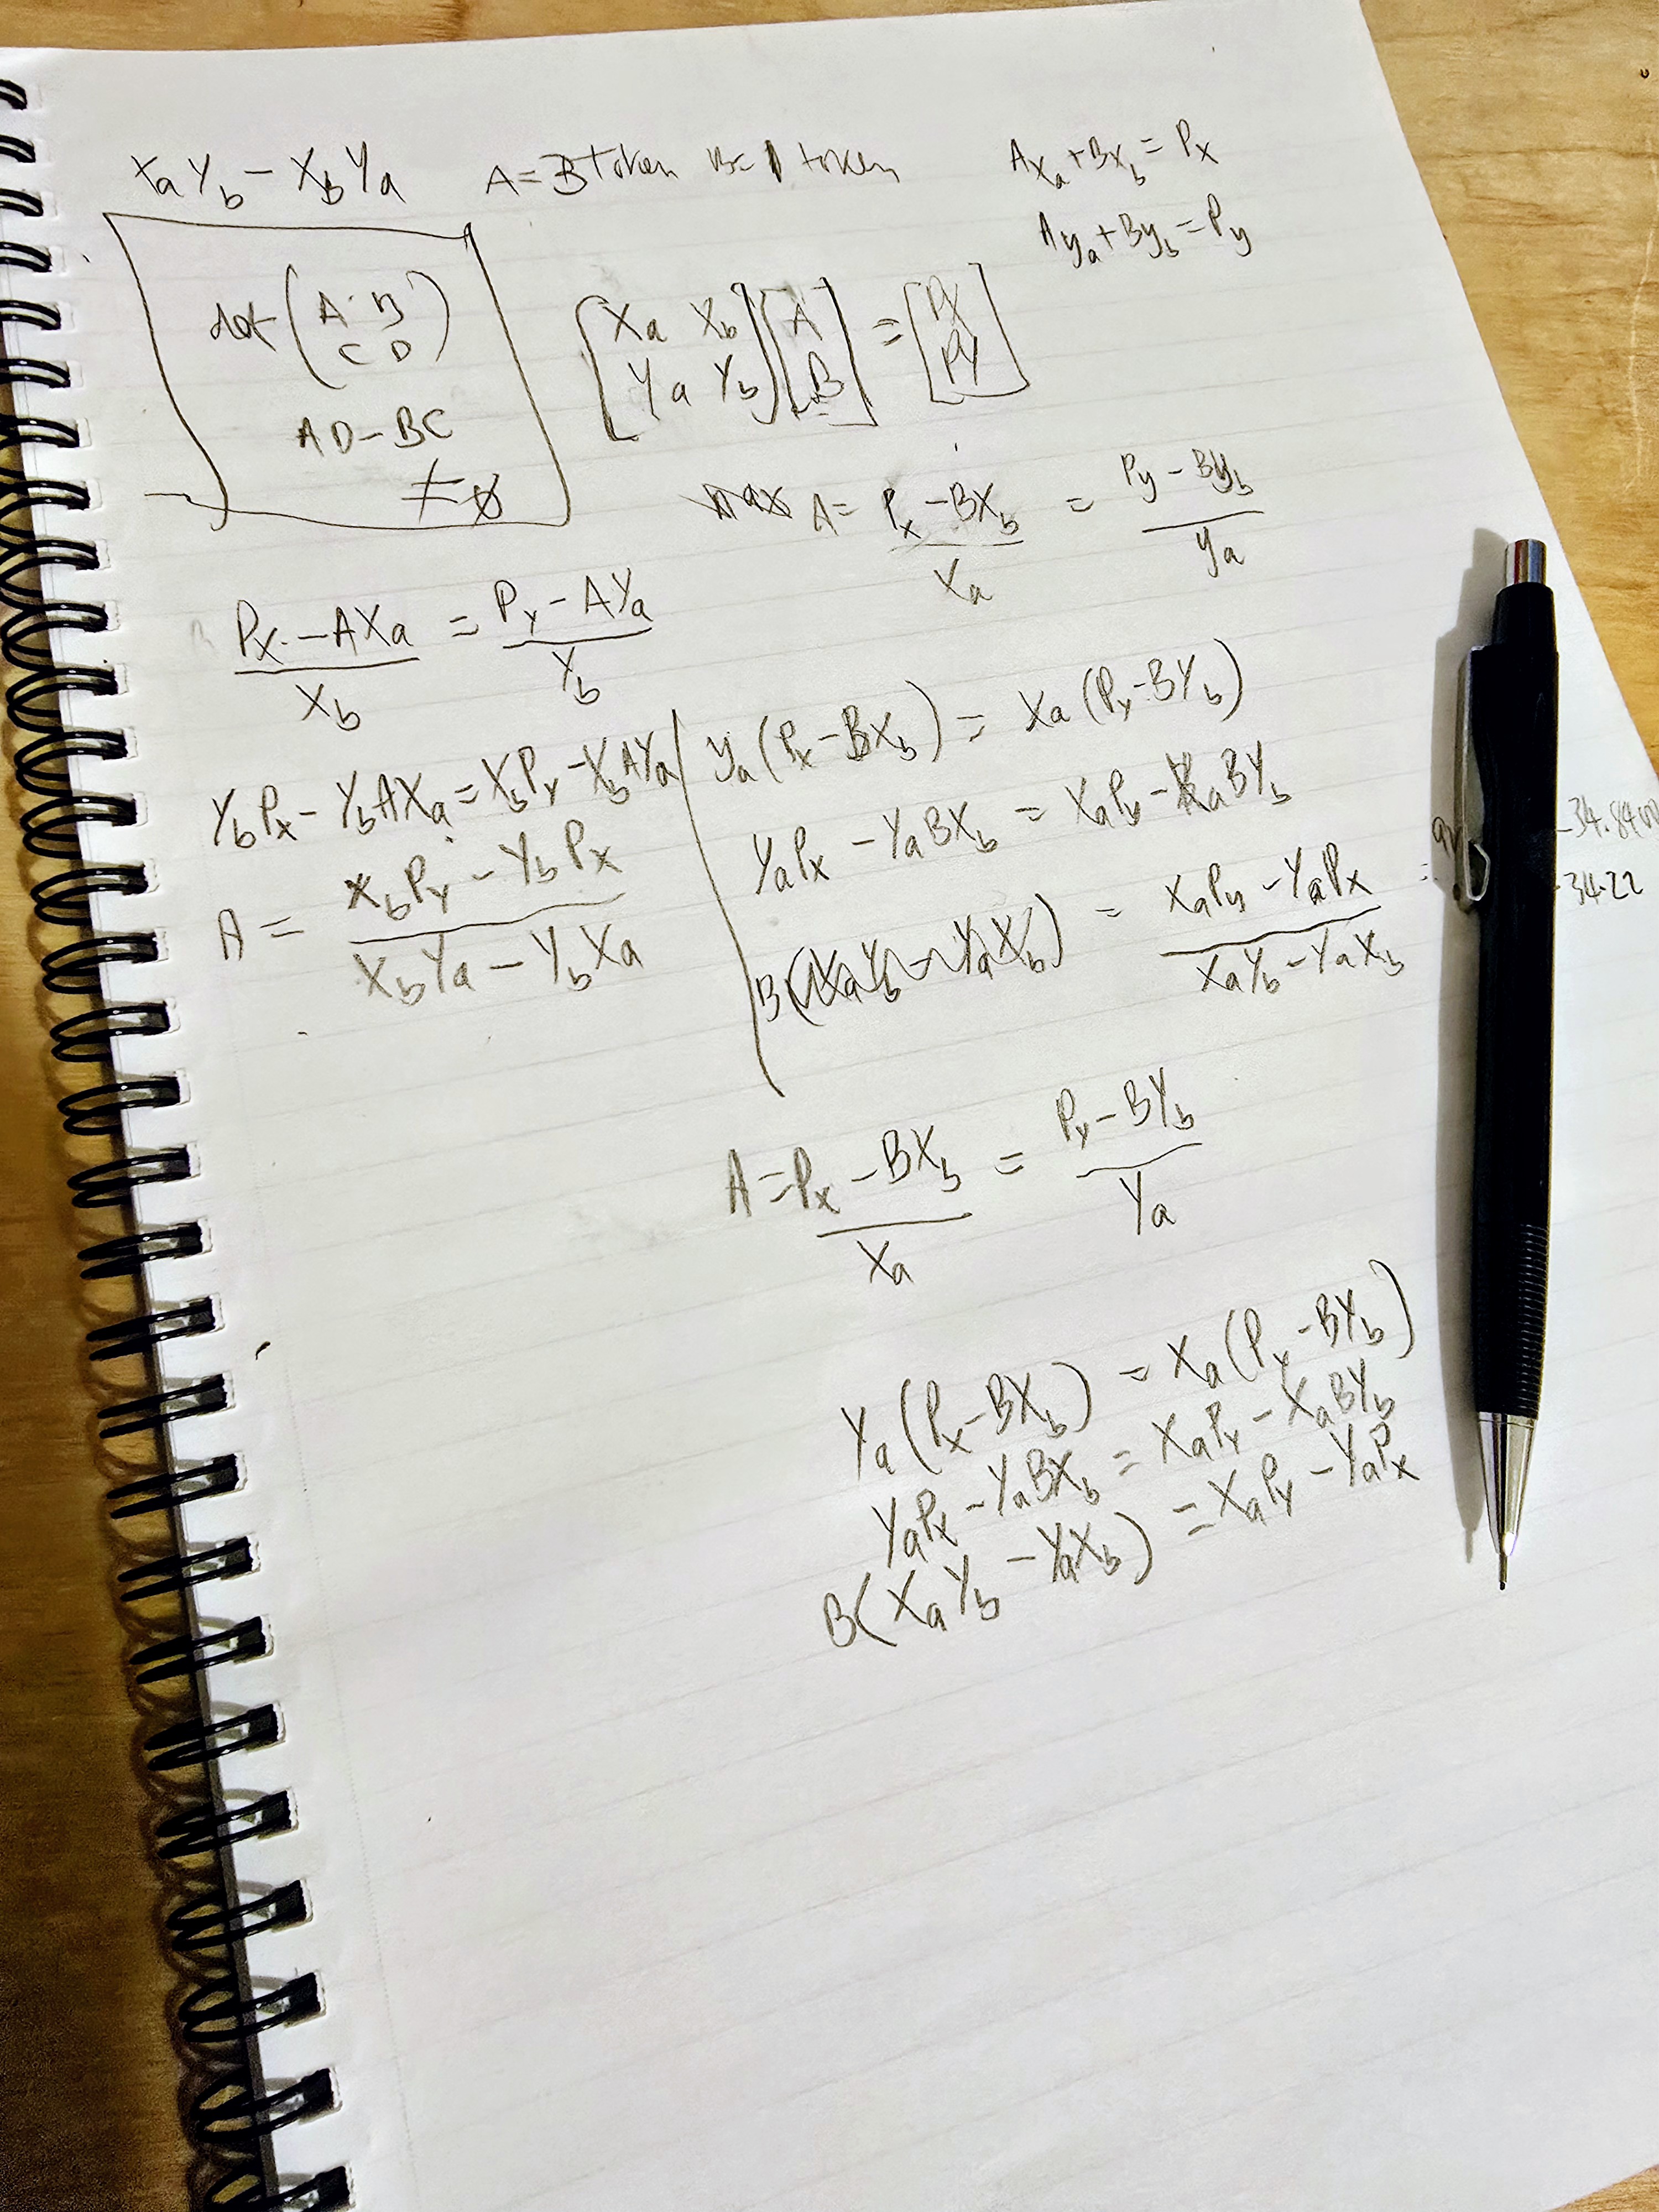 XaYb - XBYa   A = 3 token   B = 1 token   Axa + Bxb = Px
Aya + Byb = Py
det (A B
C D)
[Xa Xb
Ya Yb] [A
B] = [PX
PY]
AD - BC
≠ 0
A = (Px - BXb) / Xa = (Py - Byb) / ya
(Px - AXa) / Xb = (Py - AYa) / Yb
YbPx - YbAXa = XbPy - XbAYa
A = (XbPy - YbPx) / (XbYa - YbXa)
ya (Px - BXb) = Xa (Py - BYb)
YaPx - YaBXb = XaPy - XaBYb
B(XaYb - YaXb) = (XaPy - YaPx) / (XaYb - YaXb)
-34.22
A = (Px - BXb) / Xa = (Py - BYb) / Ya
Ya (Px - BXb) = Xa (Py - BYb)
YaPx - YaBXb = XaPy - XaBYb
B(XaYb - YaXb) = XaPy - YaPx